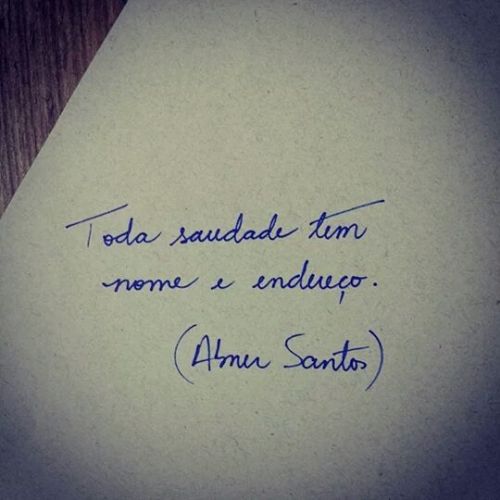 Toda saudade tem
nome e endereço.
(Abner Santos)